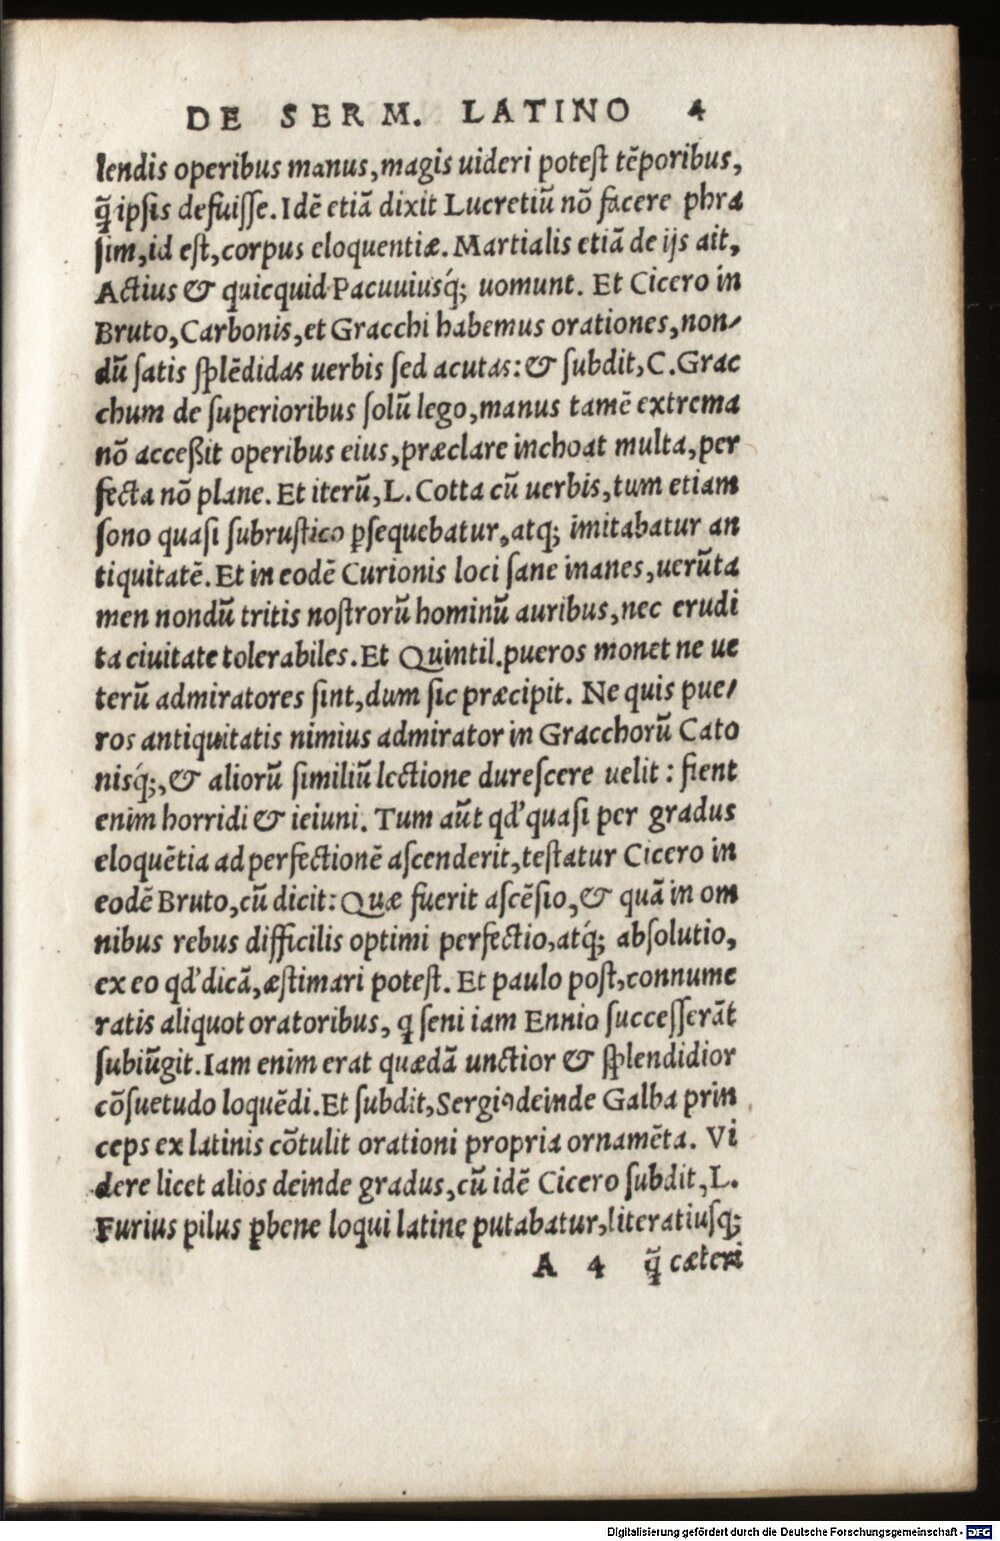 DE SERM. LATINO 4
lendis operibus manus, magis uideri potest tēporibus,
q̃ ipsis defuisse. Idē etiā dixit Lucretiũ nõ facere phra
sim, id est, corpus eloquentiæ. Martialis etiā de ijs ait,
Actius & quicquid Pacuuiusq́; uomunt. Et Cicero in
Bruto, Carbonis, et Gracchi habemus orationes, non-
dũ satis splēdidas uerbis sed acutas: & subdit, C. Grac
chum de superioribus solũ lego, manus tamē extrema
nõ acceßit operibus eius, præclare inchoat multa, per
fecta nõ plane. Et iterũ, L. Cotta cũ uerbis, tum etiam
sono quasi subrustico ꝑsequebatur, atq; imitabatur an
tiquitatē. Et in eodē Curionis loci sane inanes, uerũta
men nondũ tritis nostrorũ hominũ auribus, nec erudi
ta ciuitate tolerabiles. Et Quintil. pueros monet ne ue
terũ admiratores sint, dum sic præcipit. Ne quis pue-
ros antiquitatis nimius admirator in Gracchorũ Cato
nisq́;, & aliorũ similiũ lectione durescere uelit: fient
enim horridi & ieiuni. Tum aũt qd' quasi per gradus
eloquētia ad perfectionē ascenderit, testatur Cicero in
eodē Bruto, cũ dicit: Quæ fuerit ascēsio, & quā in om
nibus rebus difficilis optimi perfectio, atq́; absolutio,
ex eo qd' dicā, æstimari potest. Et paulo post, connume
ratis aliquot oratoribus, q seni iam Ennio successerāt
subiũgit. Iam enim erat quædā unctior & splendidior
cõsuetudo loquēdi. Et subdit, Sergiꝰ deinde Galba prin
ceps ex latinis cõtulit orationi propria ornamēta. Vi
dere licet alios deinde gradus, cũ idē Cicero subdit, L.
Furius pilus ꝑbene loqui latine putabatur, literatiusq;
A 4 q̃ cæteri
Digitalisierung gefördert durch die Deutsche Forschungsgemeinschaft - DFG